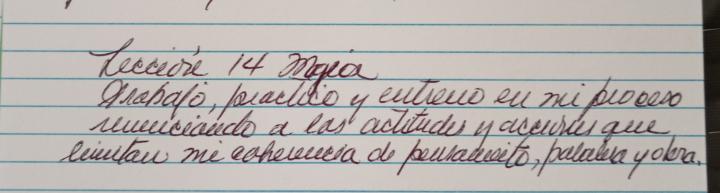 Lección 14 Magia
Trabajo, practico y entreno en mi proceso
renunciando a las actitudes y acciones que
limitan mi coherencia de pensamiento, palabra y obra.